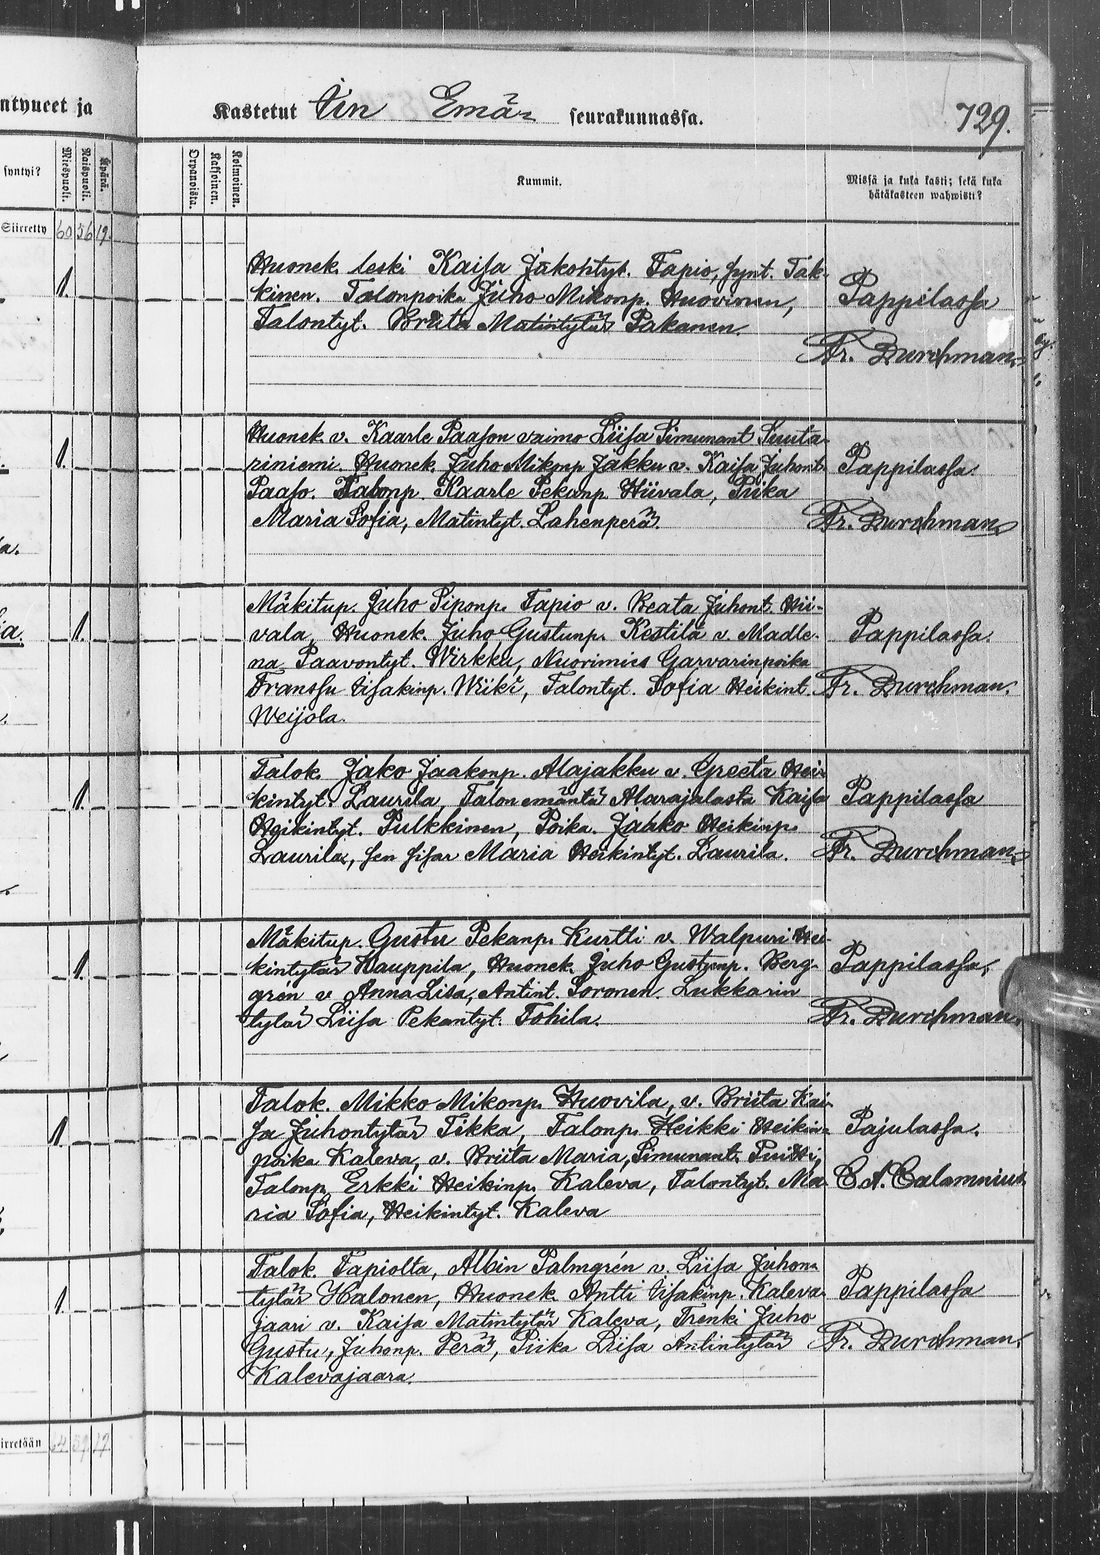 ntyneet ja
Kastetut Iin Emä= seurakunnassa. 729.
syntyi?
Miespuoli.
Naispuoli.
Äpärä.
Orpanoisia.
Kaksoinen.
Kolmoinen.
Kummit.
Missä ja kuka kasti; sekä kuka
hätäkasteen wahwisti?
Siirretty 60 56 17.
1. Huonek. leski Kaisa Jakontyt. Tapio, synt. Tak-
kinen. Talonpoika Juho Mikonp. Huovinen,
Talontyt. Briita Matintytär Pakanen.
Pappilassa
Fr. Durchman.
1. Huonek. v. Kaarle Paason vaimo Liisa Simunant. Suuta-
riniemi. Huonek. Juho Mikonp. Jakku v. Kaisa Juhont.
Paaso. Talonp. Kaarle Pekanp. Hiivala, Piika
Maria Sofia, Matintyt. Lahenperä.
Pappilassa
Fr. Durchman.
1. Mäkitup. Juho Siponp. Tapio v. Beata Juhont. Hii-
vala, Huonek. Juho Gustunp. Kestilä v. Madle-
na Paavontyt. Wirkku, Nuorimies Garvarinpoika
Franssu Iisakinp. Wiiki, Talontyt. Sofia Heikint.
Weijola.
Pappilassa
Fr. Durchman.
1. Talok. Jako Jaakonp. Alajakku v. Greeta Hei-
kintyt. Laurila, Talon emäntä Alarajalasta Kaisa
Heikintyt. Pulkkinen, Poika. Jaako Heikinp.
Laurila, sen sisar Maria Heikintyt. Laurila.
Pappilassa
Fr. Durchman.
1. Mäkitup. Gustu Pekanp. Kurtti v. Walpuri Hei-
kintytär Kauppila, Huonek. Juho Gustunp. Berg-
grén v. Anna Lisa, Antint. Soronen. Lukkarin
tytär Liisa Pekantyt. Tohila.
Pappilassa,
Fr. Durchman.
1. Talok. Mikko Mikonp. Huovila, v. Briita Kai-
sa Juhontytär Tikka, Talonp. Heikki Heikin-
poika Kaleva, v. Briita Maria, Simunant.
Talonp. Erkki Heikinp. Kaleva, Talontyt. Ma-
ria Sofia, Heikintyt. Kaleva
Pajulassa.
C A. Calamnius
1. Talok. Tapiolta, Albin Palmgrén v. Liisa Juhon-
tytär Halonen, Huonek. Antti Iisakinp. Kaleva-
jaari v. Kaisa Matintytär Kaleva, Trenki Juho
Gustu, Juhonp. Perä, Piika Liisa Antintytär
Kalevajaara.
Pappilassa
Fr. Durchman.
irretään 64 59 17